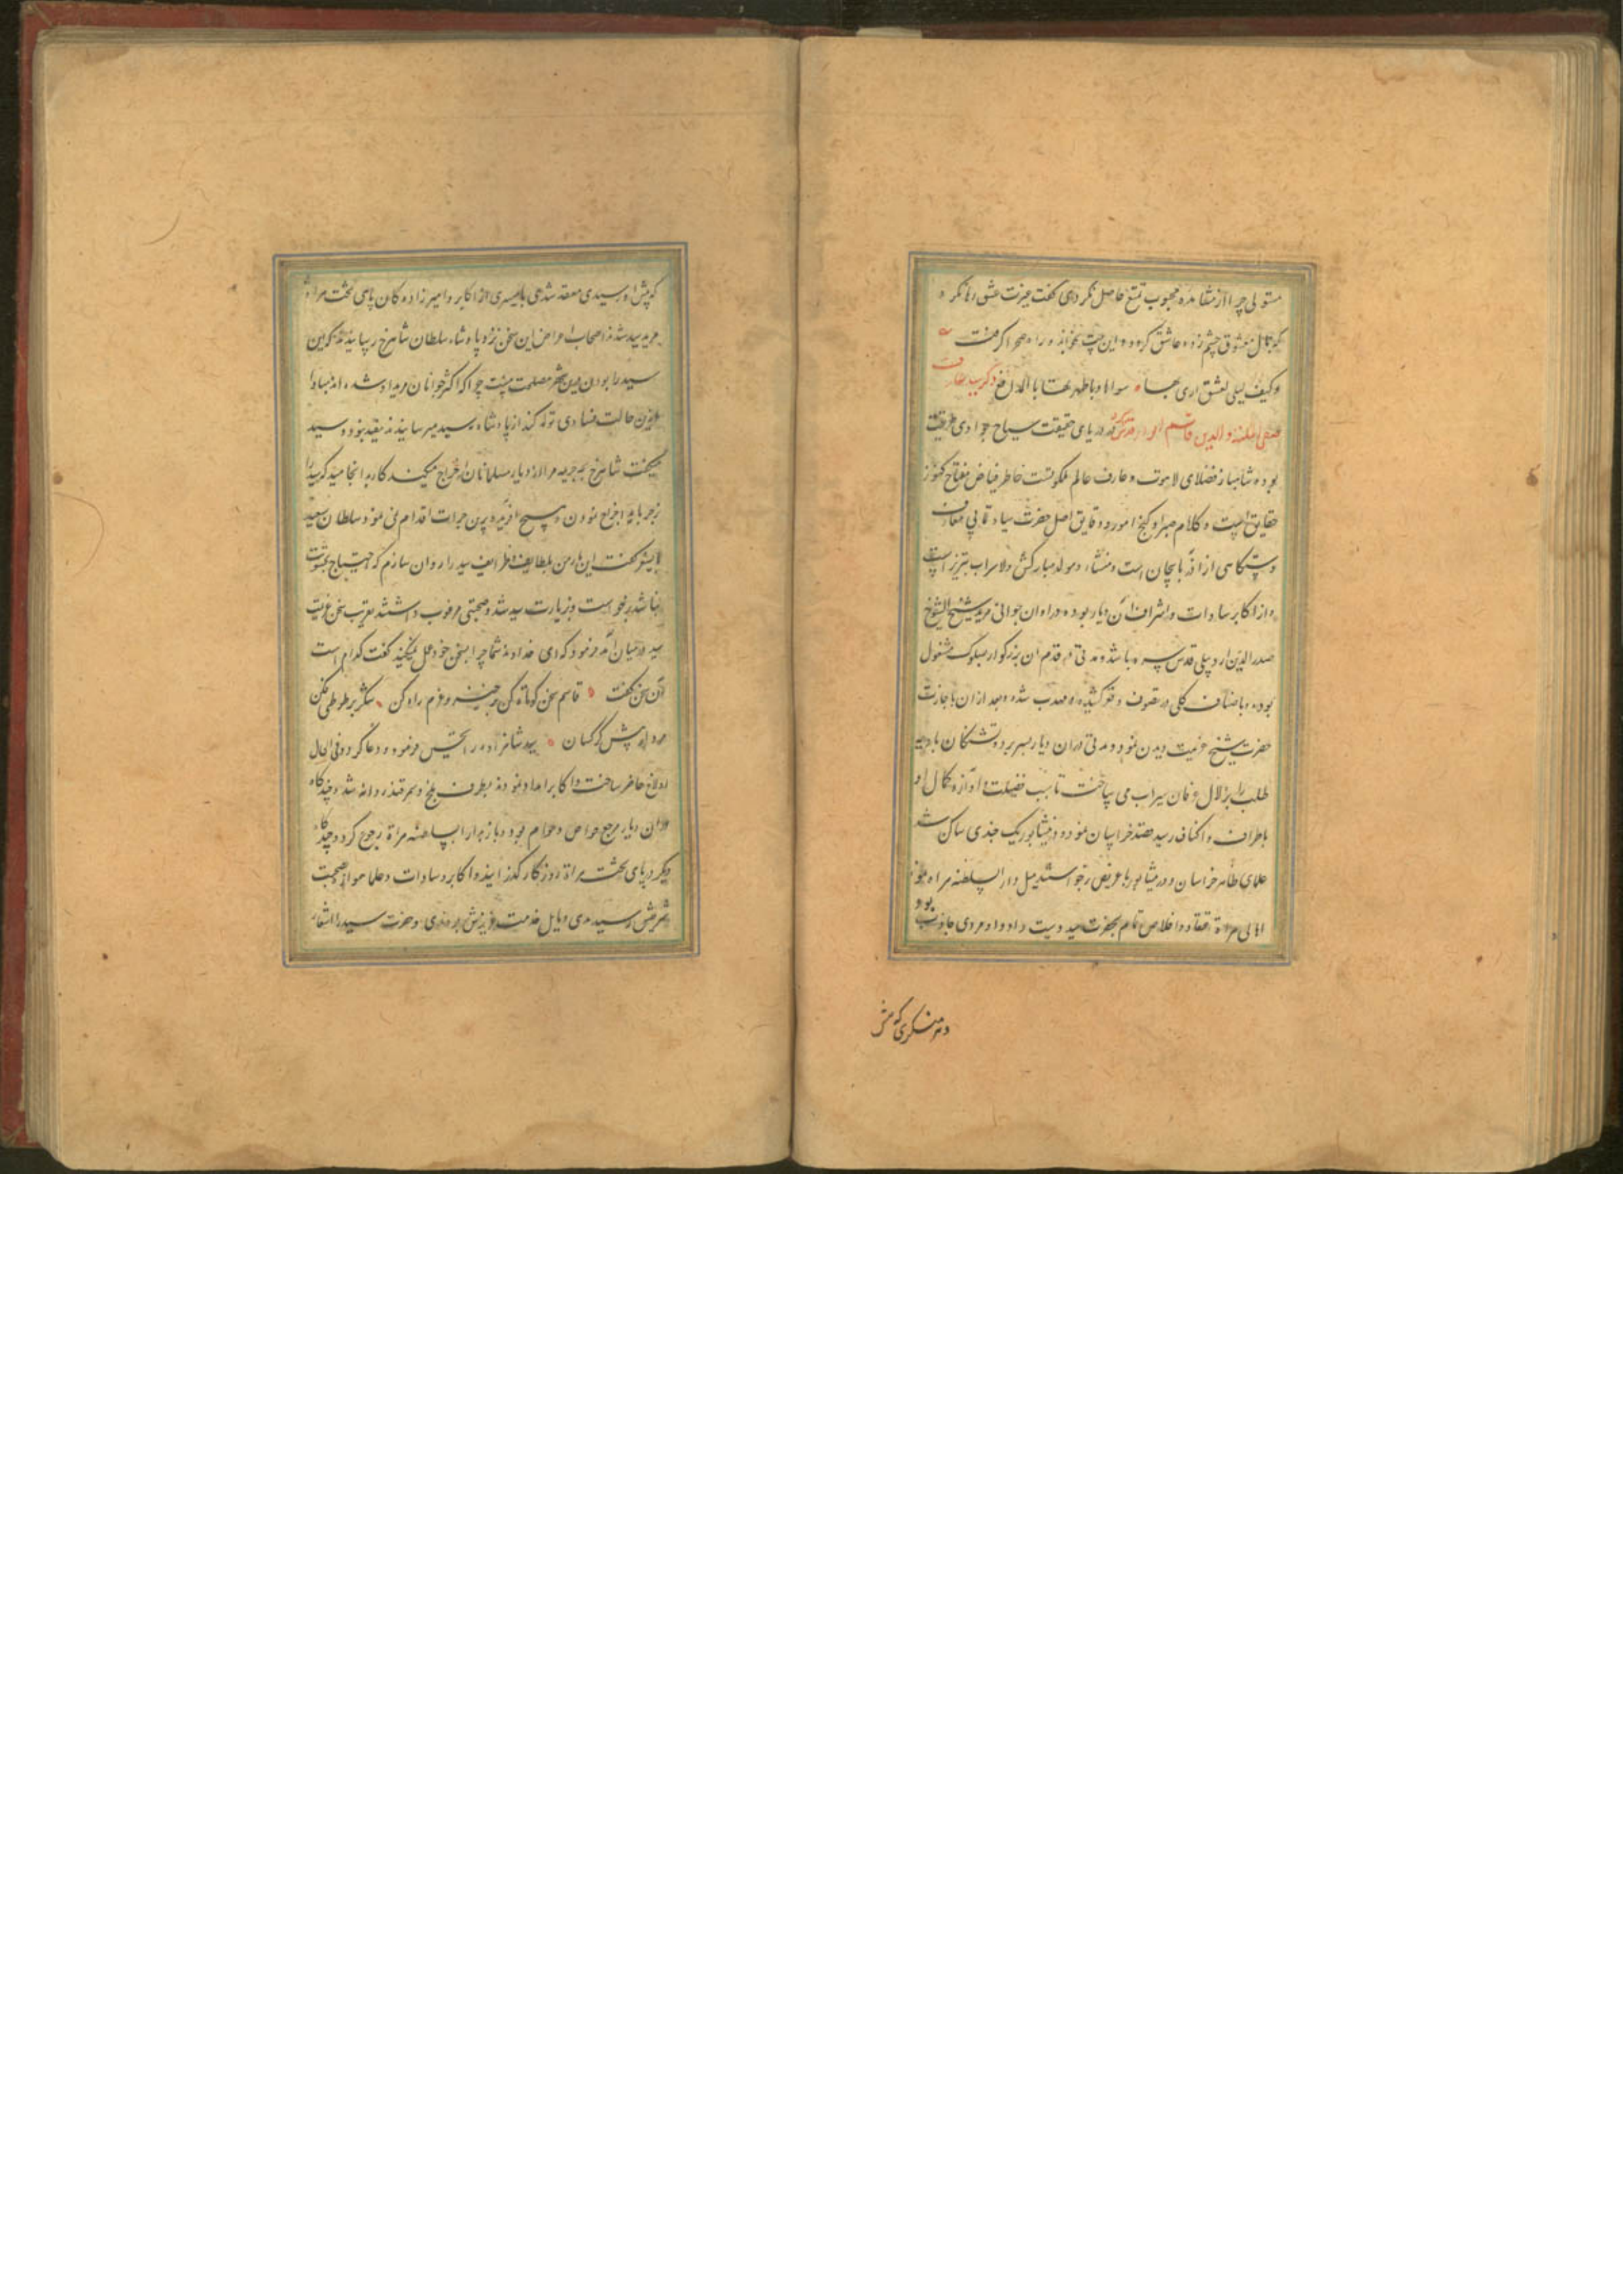 مستولی چرا از مشاهده محبوب تمتع حاصل نکردی گفت غیرت عشق رها نکرد
که جمال معشوق چشم زده عاشق گردد و این بیت بخواند و راه صحرا گرفت
وکیف لیلی بعشق اری بها سواها وما طهرتها بالمدامع ذکر سید عارف
صفی الملة والدین قاسم انوار قدس سره در دریای حقیقت سیاح بوادی طریقت
بوده شاهباز فضلای لاهوت و عارف عالم ملکوتست خاطر فیاض مفتاح کنوز
حقایق است و کلام گنج امور و دقایق اصل حضرت سیادت مآبی معارف
دستگاهی از آذربایجان است و منشاء و مولد مبارکش ولا سراب تبریز است
و از اکابر سادات و اشراف آن دیار بوده و در اوان جوانی مرید شیخ الشیوخ
صدر الدین اردبیلی قدس سره باشد و مدتی در قدم آن بزرگوار بسلوک مشغول
بوده و باصناف کلی در تصوف و فقر کشیده و مهذب شده و بعد از ان باجازت
حضرت شیخ عزیمت دیدن نمود و مدتی در ان دیار بسر برد و تشنگان بادیه
طلب را بزلال عرفان سیراب می ساخت تا سبب فضیلت و آوازه کمال او
باطراف و اکناف رسید قصد خراسان نمود و در نیشابور یک چندی ساکن شد
علمای ظاهر خراسان در نیشابور با عریض برخواستند میل دار السلطنه هراة نمود
اهالی هراة اعتقاد و اخلاص تمام بحضرت سید دست داد و او مردی جاذب بود
و هر منکری که پیش
که پیش او رسیدی معتقد شدی تا بسیاری از اکابر و امیرزاده کان پای تخت هراة
مرید سید شدند اصحاب اعراض این سخن نزد پادشاه سلطان شاهرخ رسانیدند که این
سید را بودن درین شهر مصلحت نیست چرا که اکثر جوانان مرید او شده اند مبادا
ازین حالت فسادی تولد کند از پادشاه سید میرسانیدند مقید نبود و سید
میگفت شاهرخ بچه جریمه مرا از دیار مسلمانان اخراج میکند کار بدانجا رسید که سید را
بزجر باید اخراج نمودن و هیچ آفریده برین جرات اقدام نمی نمود سلطان سعید
بایسنغر گفت این کار من بلطایف و ظرایف سید را روان سازم که احتیاج بخشونت
نباشد برخواست و بزیارت سید شد و صحبتی مرغوب داشتند بتقریب سخن عزیمت
سید در میان آمد فرمود که ای خداوند شما چرا بسخن خود عمل نمیکنید گفت کدام است
آن سخن گفت قاسم سخن کوتاه کن برخیز و عزم راه کن شکر بر طوطی فکن
مردار پیش کرکسان سید شاهزاده را تحسین فرمود و دعا کرد و فی الحال
اولاغ حاضر ساخت و اکابر امداد نمودند بطرف بلخ و سمرقند روانه شد و چندگاه
در ان دیار مرجع خواص و عوام بود و باز بدار السلطنه هراة رجوع کرد و چندگاه
دیگر در پای تخت هراة روزگار گذرانید و اکابر و سادات و علما صحبت
شریفش رسیدندی و مایل خدمت عزیزش بودندی و حضرت سید را اشعار